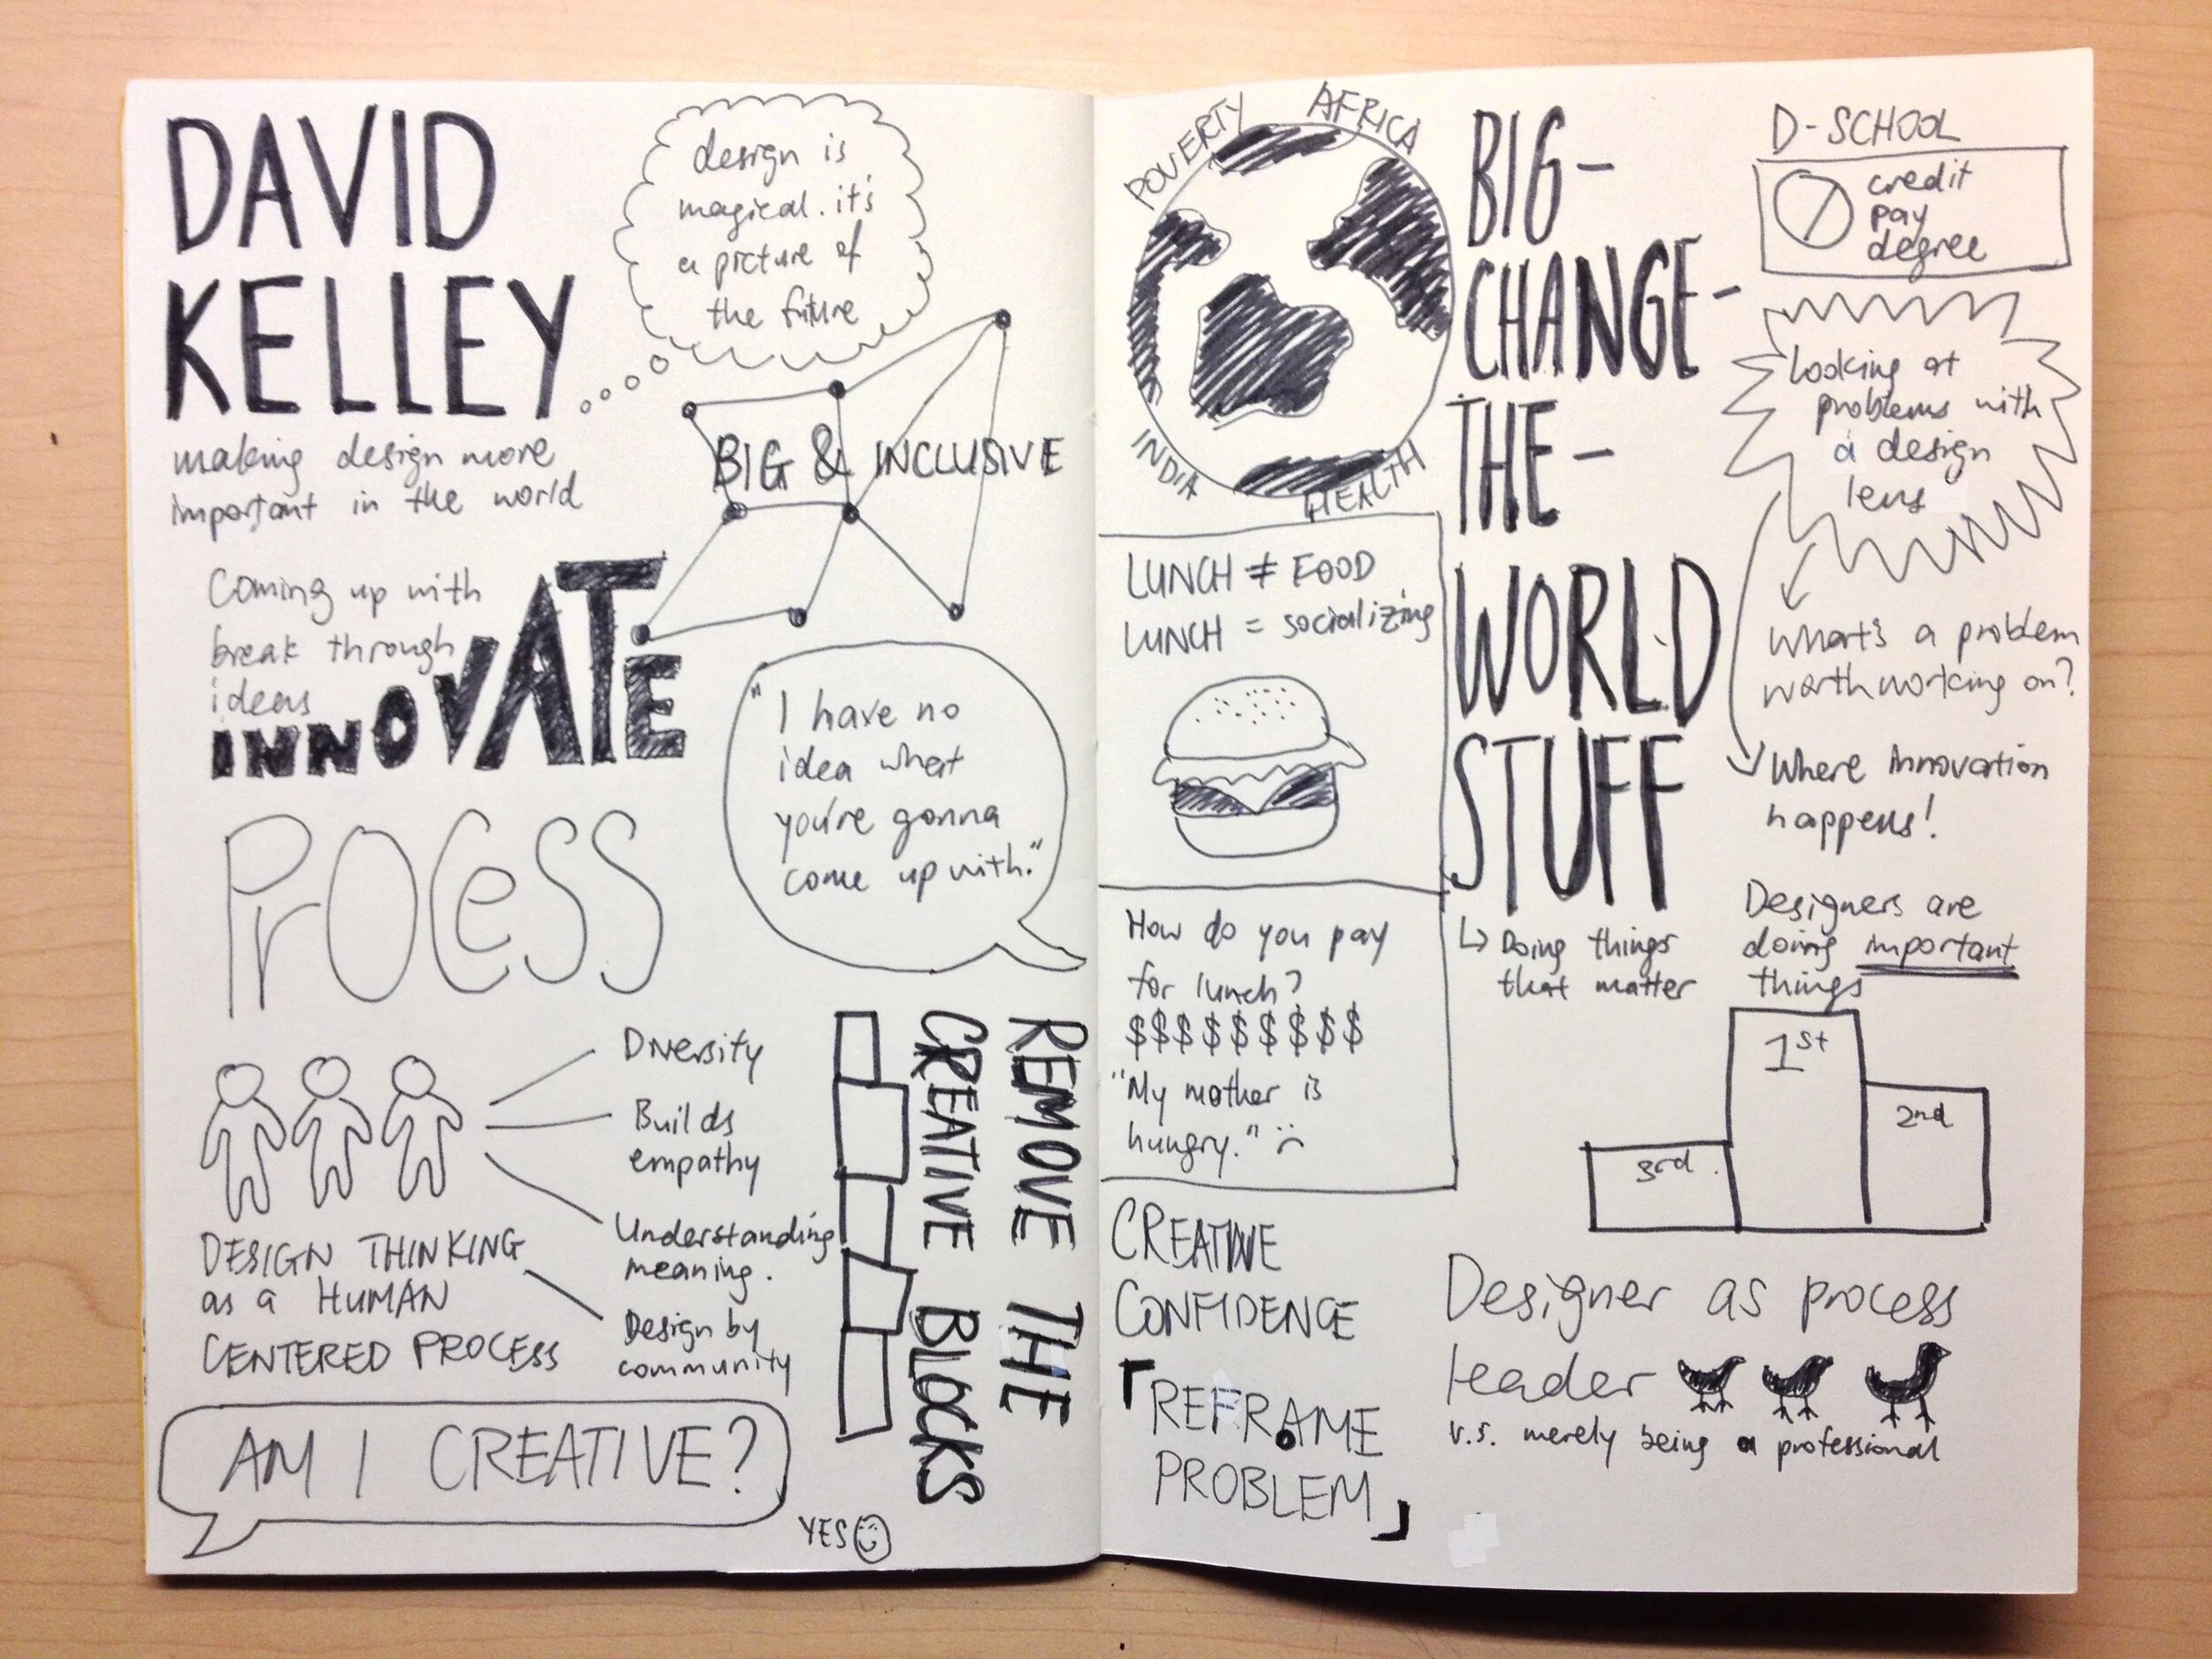 DAVID
KELLEY
making design more
important in the world
design is
magical. it's
a picture of
the future
BIG & INCLUSIVE
Coming up with
break through
ideas
INNOVATE
PrOCeSS
"I have no
idea what
you're gonna
come up with."
Diversity
Builds
empathy
Understanding
meaning.
Design by
community
DESIGN THINKING
as a HUMAN
CENTERED PROCESS
AM I CREATIVE?
YES
REMOVE THE
CREATIVE BLOCKS
POVERTY
AFRICA
INDIA
HEALTH
LUNCH ≠ FOOD
LUNCH = socializing
How do you pay
for lunch?
$$$$$$$$$
"My mother is
hungry." :(
CREATIVE
CONFIDENCE
「REFRAME
PROBLEM」
BIG-
CHANGE-
THE-
WORLD
STUFF
↳ Doing things
that matter
D-SCHOOL
credit
pay
degree
Looking at
problems with
a design
lens
What's a problem
worth working on?
Where innovation
happens!
Designers are
doing important
things
1st
2nd
3rd
Designer as process
leader
v.s. merely being a professional